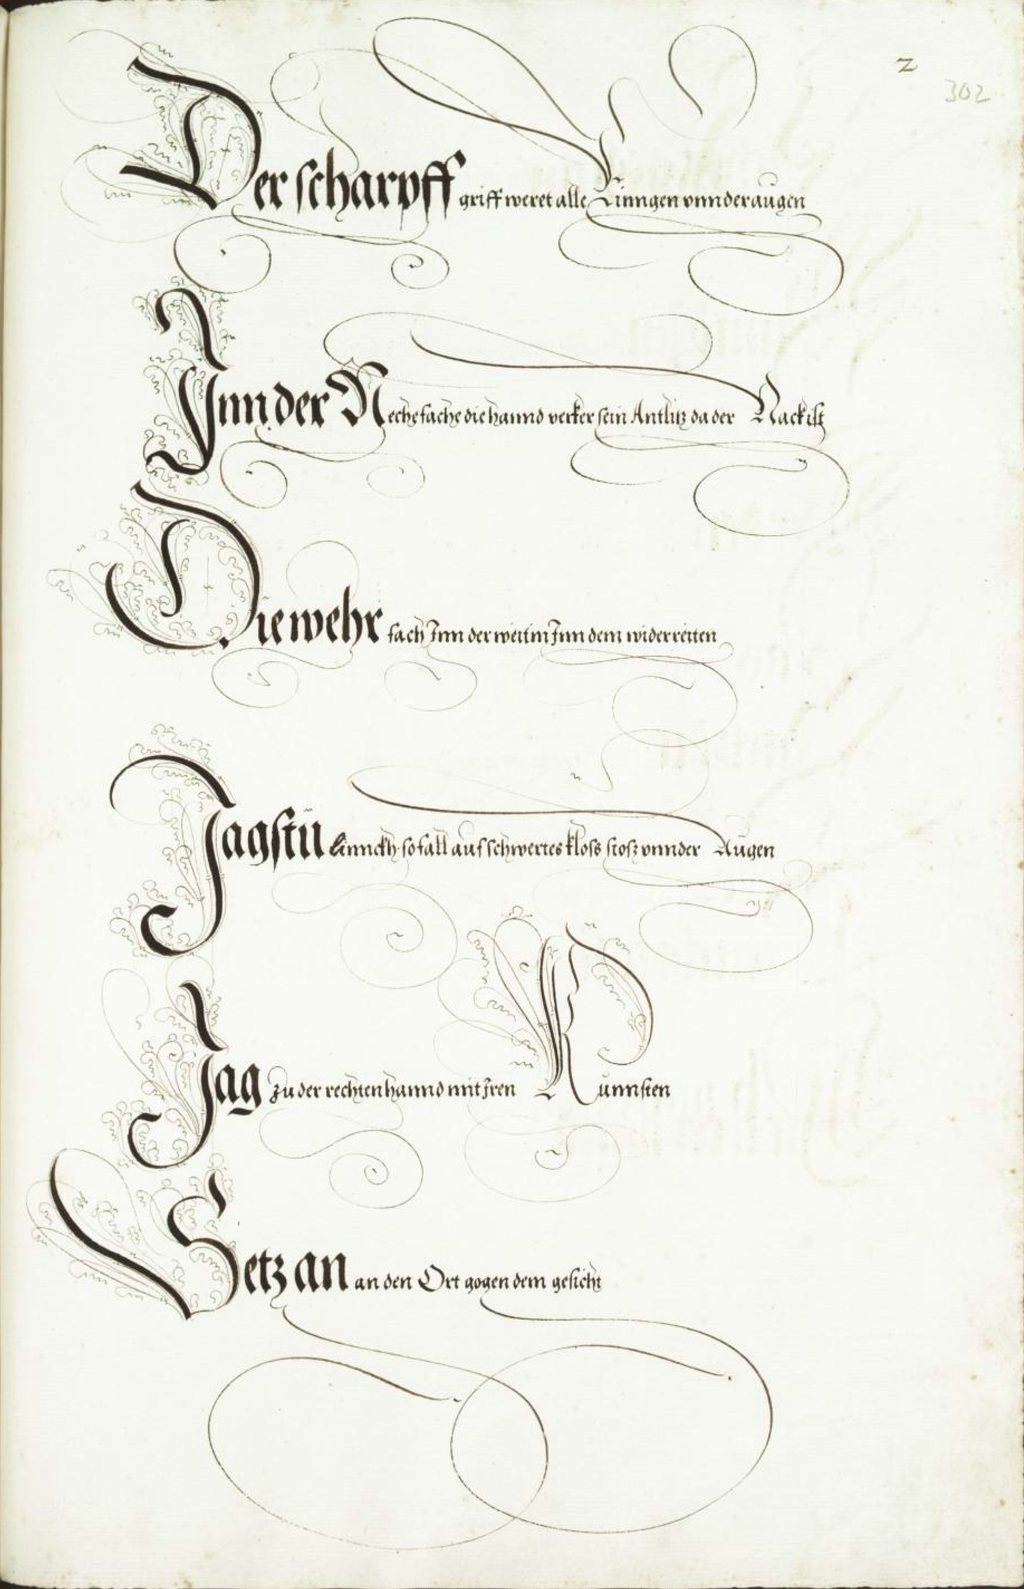 2
302
Der scharpff griff weret alle Rinngen vnnder augen
Inn der Neche fache die hannd verker sein Antlitz da der Nack ist
Die wehr fach Inn der weitin Inn dem widerreiten
Jagstu Linnckh so fall auf schwertes kloss stoss vnnder Augen
Jag zu der rechten hannd mit Iren Kunnsten
Setz an an den Ort gogen dem gesicht